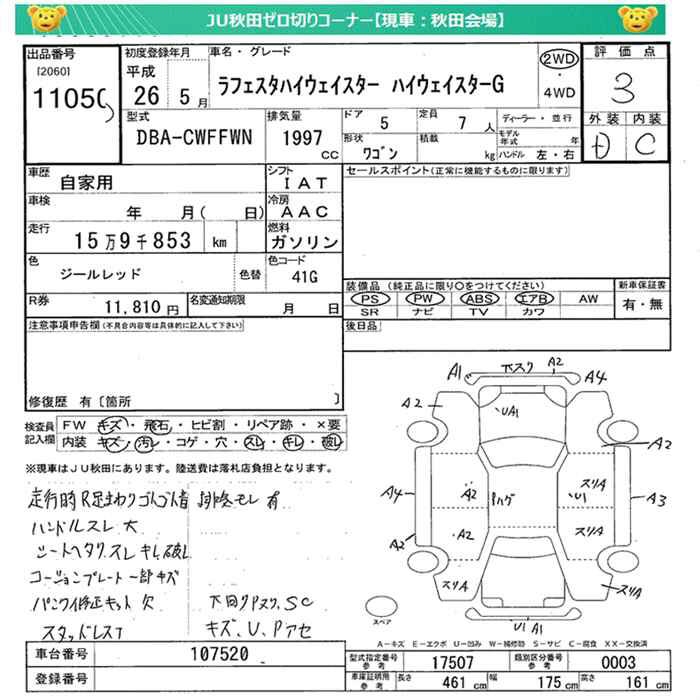 JU秋田ゼロ切りコーナー【現車：秋田会場】
出品番号
[2060]
1105
初度登録年月
平成
26 5月
車名・グレード
ラフェスタハイウェイスター ハイウェイスターG
2WD
・
4WD
評価点
3
外装 内装
D C
型式
DBA-CWFFWN
排気量
1997
cc
ドア
5
定員
7人
形状
ワゴン
積載
kg
ディーラー・並行
モデル年式 年
ハンドル 左・右
車歴
自家用
シフト
IAT
車検
年 月( 日)
冷房
AAC
走行
15万9千853 km
燃料
ガソリン
色
ジールレッド
色替
色コード
41G
R券
11,810円
名変通知期限
月 日
セールスポイント(正常に機能するものに限ります)
装備品 (純正品に限り○をつけてください)
PS PW ABS エアB AW
SR ナビ TV カワ
新車保証書
有・無
後日品
注意事項申告欄(不具合内容等は具体的に記入して下さい)
修復歴 有〔箇所 〕
検査員記入欄
FW キズ・飛石・ヒビ割・リペア跡・×要
内装 キズ・汚レ・コゲ・穴・スレ・キレ・破レ
※現車はJU秋田にあります。陸送費は落札店負担となります。
走行時R足まわりゴトゴト音 排気モレ有
ハンドルスレ大
シートヘタリスレキレ破レ
コーションプレート一部キズ
パンク修正キット欠
下回りPスク、SC
スタッドレスT
キズ、U、Pアセ
A1 下スク A2 A4
A2
UA1
A2
A4
A2
ハゲ
スリA
U1
A3
A2
A2
スリA
スリA
スリA
U1 A1
スペア
A－キズ E－エクボ U－凹み W－補修跡 S－サビ C－腐食 XX－交換済
車台番号
107520
登録番号
型式指定番号
参考
17507
類別区分番号
参考
0003
車庫証明用
参考
長さ
461 cm
幅
175 cm
高さ
161 cm